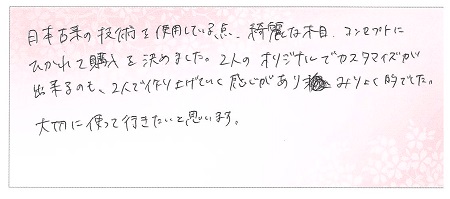 日本古来の技術を使用している点、綺麗な木目、コンセプトに
ひかれて購入を決めました。2人のオリジナルでカスタマイズが
出来るのも、2人で作り上げていく感じがあり みりょく的でした。
大切に使って行きたいと思います。